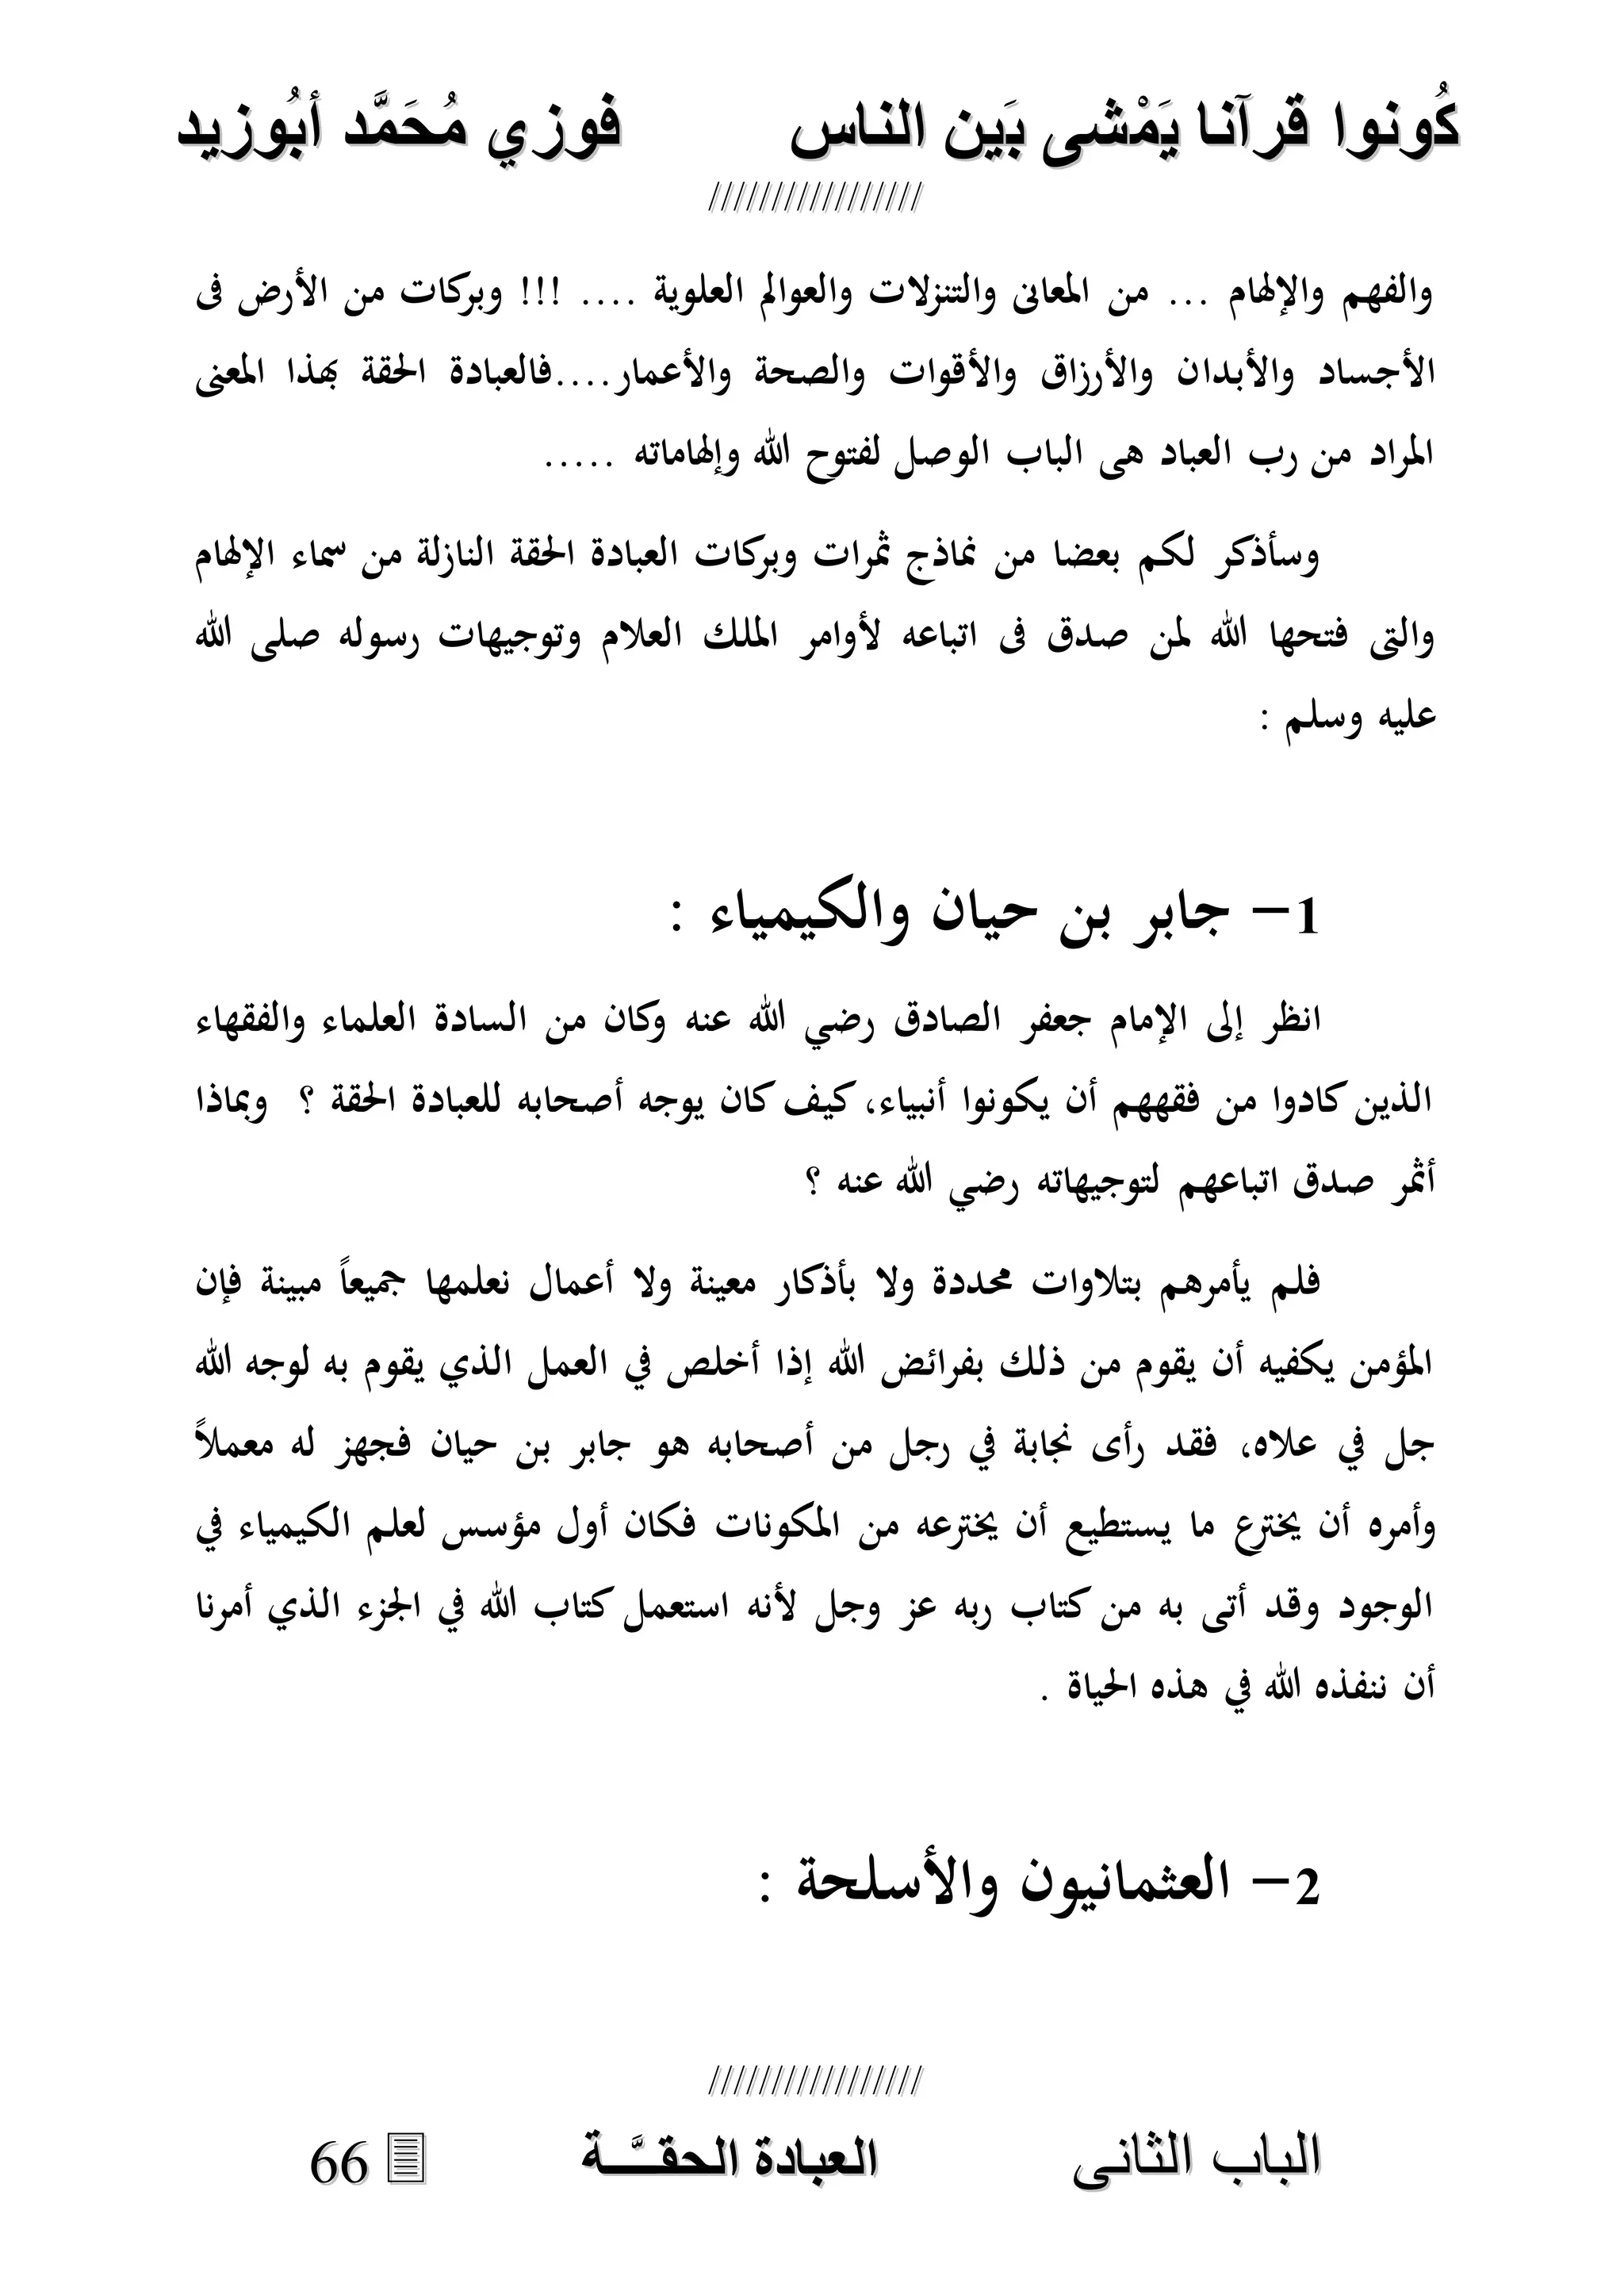 كُونوا قرآنا يَمْشى بَين الناس فوزي مُحَمَّد أبُوزيد
/////////////////
والفهم والإلهام ... من المعانى والتنزلات والعوالم العلوية .... !!! وبركات من الأرض فى
الأجساد والأبدان والأرزاق والأقوات والصحة والأعمار....فالعبادة الحقة بهذا المعنى
المراد من رب العباد هى الباب الوصل لفتوح الله وإلهاماته .....
وسأذكر لكم بعضا من نماذج ثمرات وبركات العبادة الحقة النازلة من سماء الإلهام
والتى فتحها الله لمن صدق فى اتباعه لأوامر الملك العلام وتوجيهات رسوله صلى الله
عليه وسلم :
1- جابر بن حيان والكيمياء :
انظر إلى الإمام جعفر الصادق رضي الله عنه وكان من السادة العلماء والفقهاء
الذين كادوا من فقههم أن يكونوا أنبياء، كيف كان يوجه أصحابه للعبادة الحقة ؟ وبماذا
أثمر صدق اتباعهم لتوجيهاته رضي الله عنه ؟
فلم يأمرهم بتلاوات محددة ولا بأذكار معينة ولا أعمال نعلمها جميعاً مبينة فإن
المؤمن يكفيه أن يقوم من ذلك بفرائض الله إذا أخلص في العمل الذي يقوم به لوجه الله
جل في علاه، فقد رأى نجابة في رجل من أصحابه هو جابر بن حيان فجهز له معملاً
وأمره أن يخترع ما يستطيع أن يخترعه من المكونات فكان أول مؤسس لعلم الكيمياء في
الوجود وقد أتى به من كتاب ربه عز وجل لأنه استعمل كتاب الله في الجزء الذي أمرنا
أن ننفذه الله في هذه الحياة .
2- العثمانيون والأسلحة :
/////////////////
الباب الثانى العبادة الحقـــَّـــة 66